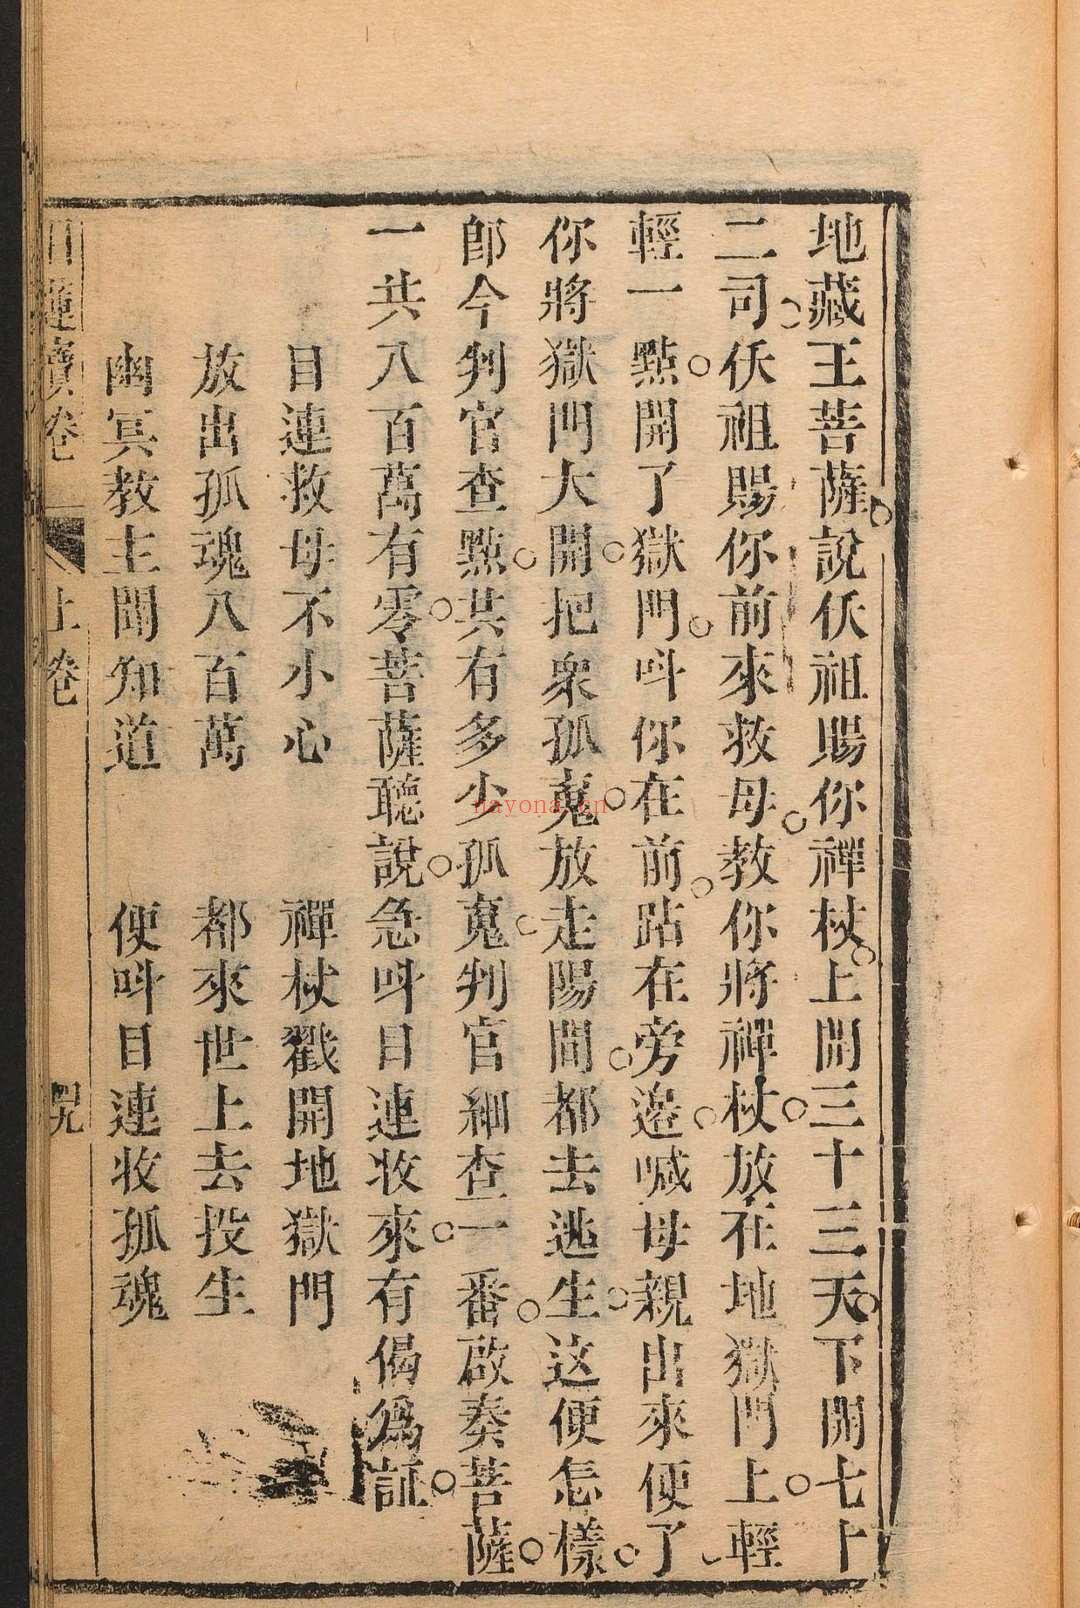 地藏王菩薩說仸祖賜你禪杖上開三十三天下開七十
二司仸祖賜你前來救母教你將禪杖放在地獄門上輕
輕一點開了獄門呌你在前跕在旁邊喊母親出來便了
你將獄門大開把衆孤䰟放走陽間都去逃生这便怎樣
郎今判官查點共有多少孤䰟判官細查一番啟奏菩薩
一共八百萬有零菩薩聽說急呌目連收來有偈爲証
目連救母不小心　禪杖戳開地獄門
放出孤魂八百萬　都來世上去投生
幽冥教主聞知道　便呌目連收孤魂
目連寶卷　上卷　四九
nayona.cn